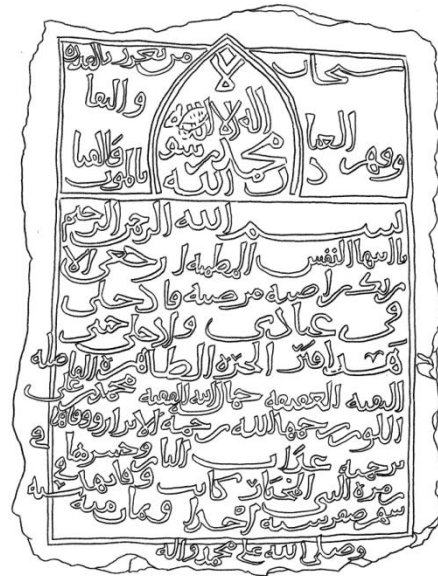 سبحان من تعزز بالقدرة
والبقا
وقهر العباد
بالموت والفنا
لا
اله الا الله
محمد رسو
ل الله
بسم الله الرحمن الرحيم
يا ايتها النفس المطمئنة ارجعي الا
ربك راضية مرضية فادخلي
في عبادي وادخلي جنتي
هذا قبر الحرة الطاهرة الفاضلة
العفيفة الفقيه محمد بن علي
رحمها الله رحمة الابرار ووقاها
برحمته عذاب النار وحشرها
زمرة النبي المختار كانت وفاتها
شهر صفر سنة احدا وثمان مية
وصلى الله على محمد واله